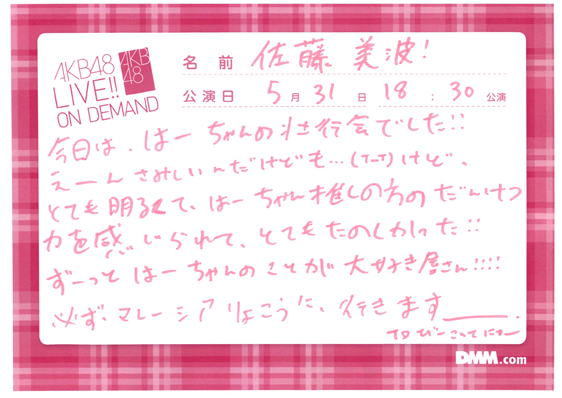 AKB48
LIVE!!
ON DEMAND
AKB
48
名前 佐藤美波!
公演日 5月31日 18:30公演
今日は、はーちゃんの壮行会でした!!
えーんさみしいんだけども…(T-T)けど、
とても明るくて、はーちゃん推しの方のだんけつ
力を感じられて、とてもたのしかった!!
ずーっとはーちゃんのことが大好き屋さん!!!!
必ず、マレーシアりょこうに、行きます
DMM.com